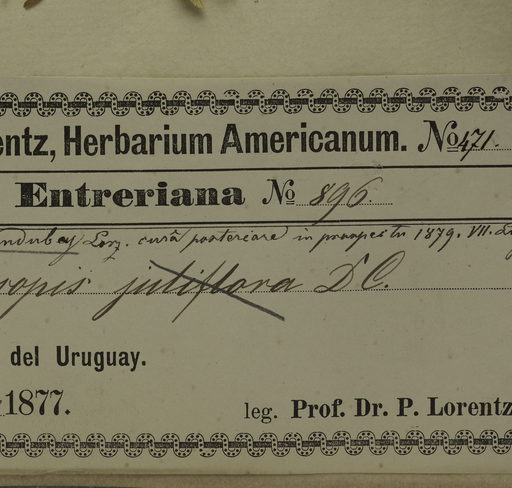 entz, Herbarium Americanum. No 471.
Entreriana No 896.
ndubey Lorz. curâ posteriore in prospectu 1879. VII.
sopis juliflora DC.
del Uruguay.
1877.
leg. Prof. Dr. P. Lorentz